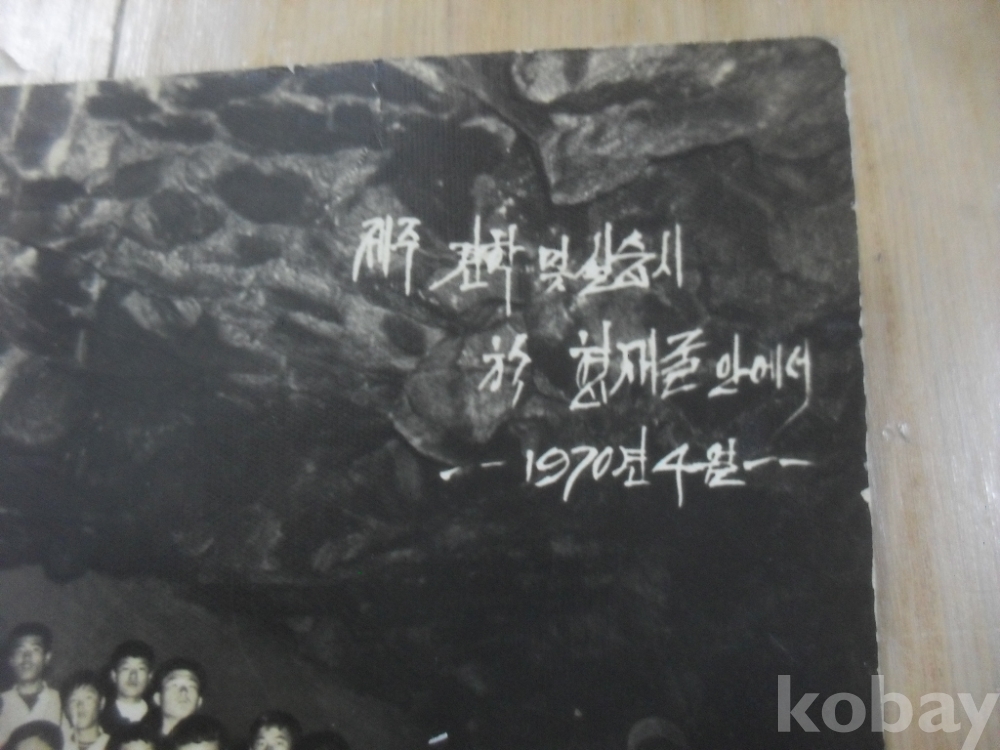 제주 견학 및 실습시
於 협재굴 안에서
-- 1970년 4월 --
kobay